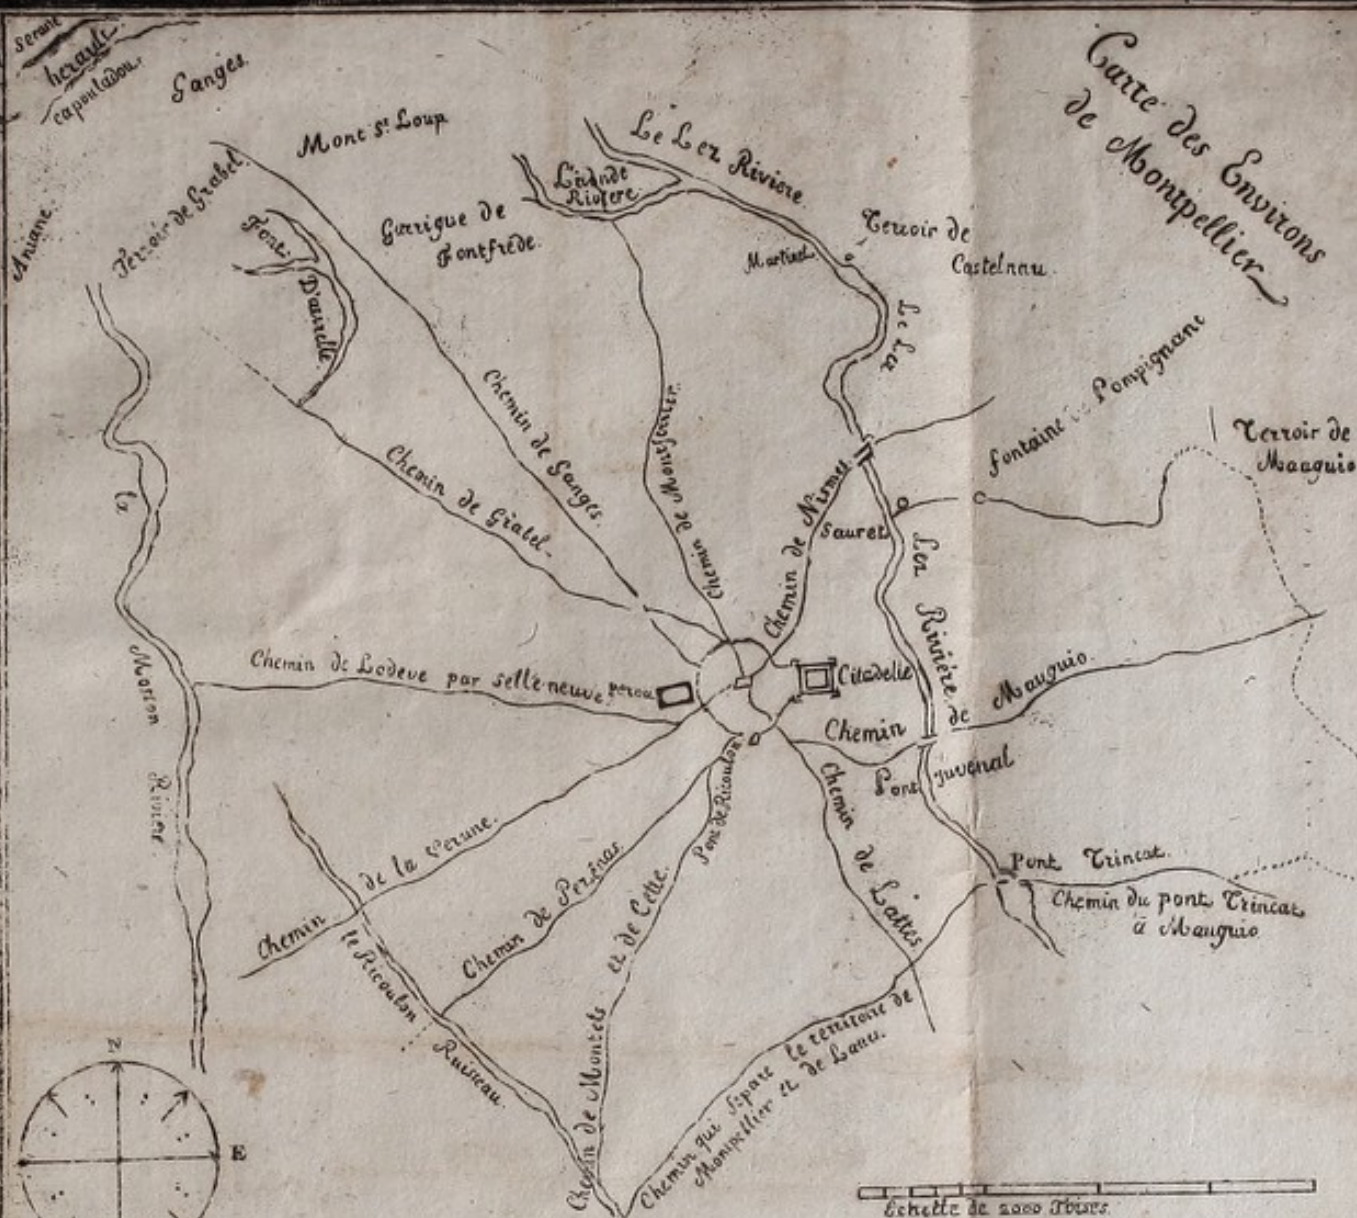 Carte des Environs
de Montpellier
Serane
herault
capouladou
Ganges
Mont St. Loup
Le Lez Riviere
Aniane
Terroir de Grabel
Font
D'aurelle
Garrigue de
Fontfrede
Riviere
Martinet
Terroir de
Castelnau
Le Lez
Fontaine de Pompignane
Terroir de
Mauguio
Chemin de Ganges
Chemin de Monferrier
Chemin de Grabel
Chemin de Nismes
Sauret
Lez Riviére
la
Mosson
Riviere
Chemin de Lodeve par selle neuve
perou
Citadelle
Chemin de Mauguio
Pont juvenal
Chemin de Lattes
Pont de Ricoulon
Chemin de la Verune
Chemin de Pezénas
Chemin de Montels et de Cette
le Ricoulon
Ruisseau
Pont Trincat
Chemin du pont Trincat
à Mauguio
Chemin qui separe le territoire de
Montpellier et de Lattes
E
Echelle de 2000 Toises